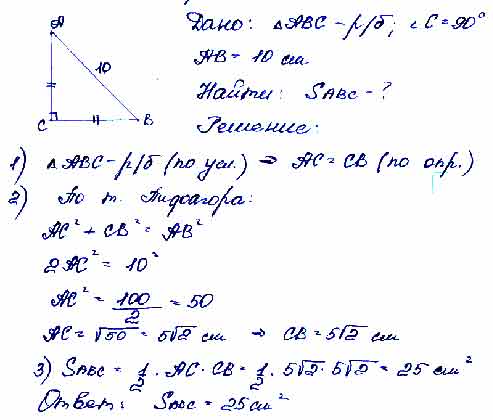 A
Дано: △ABC – р/б; ∠C = 90°
10
AB = 10 см
Найти: SABC – ?
C
B
Решение:
1) △ABC – р/б (по усл.) ⇒ AC = CB (по опр.)
2) По т. Пифагора:
AC² + CB² = AB²
2AC² = 10²
AC² = 100/2 = 50
AC = √50 = 5√2 см ⇒ CB = 5√2 см
3) SABC = 1/2 · AC · CB = 1/2 · 5√2 · 5√2 = 25 см²
Ответ: SABC = 25 см²